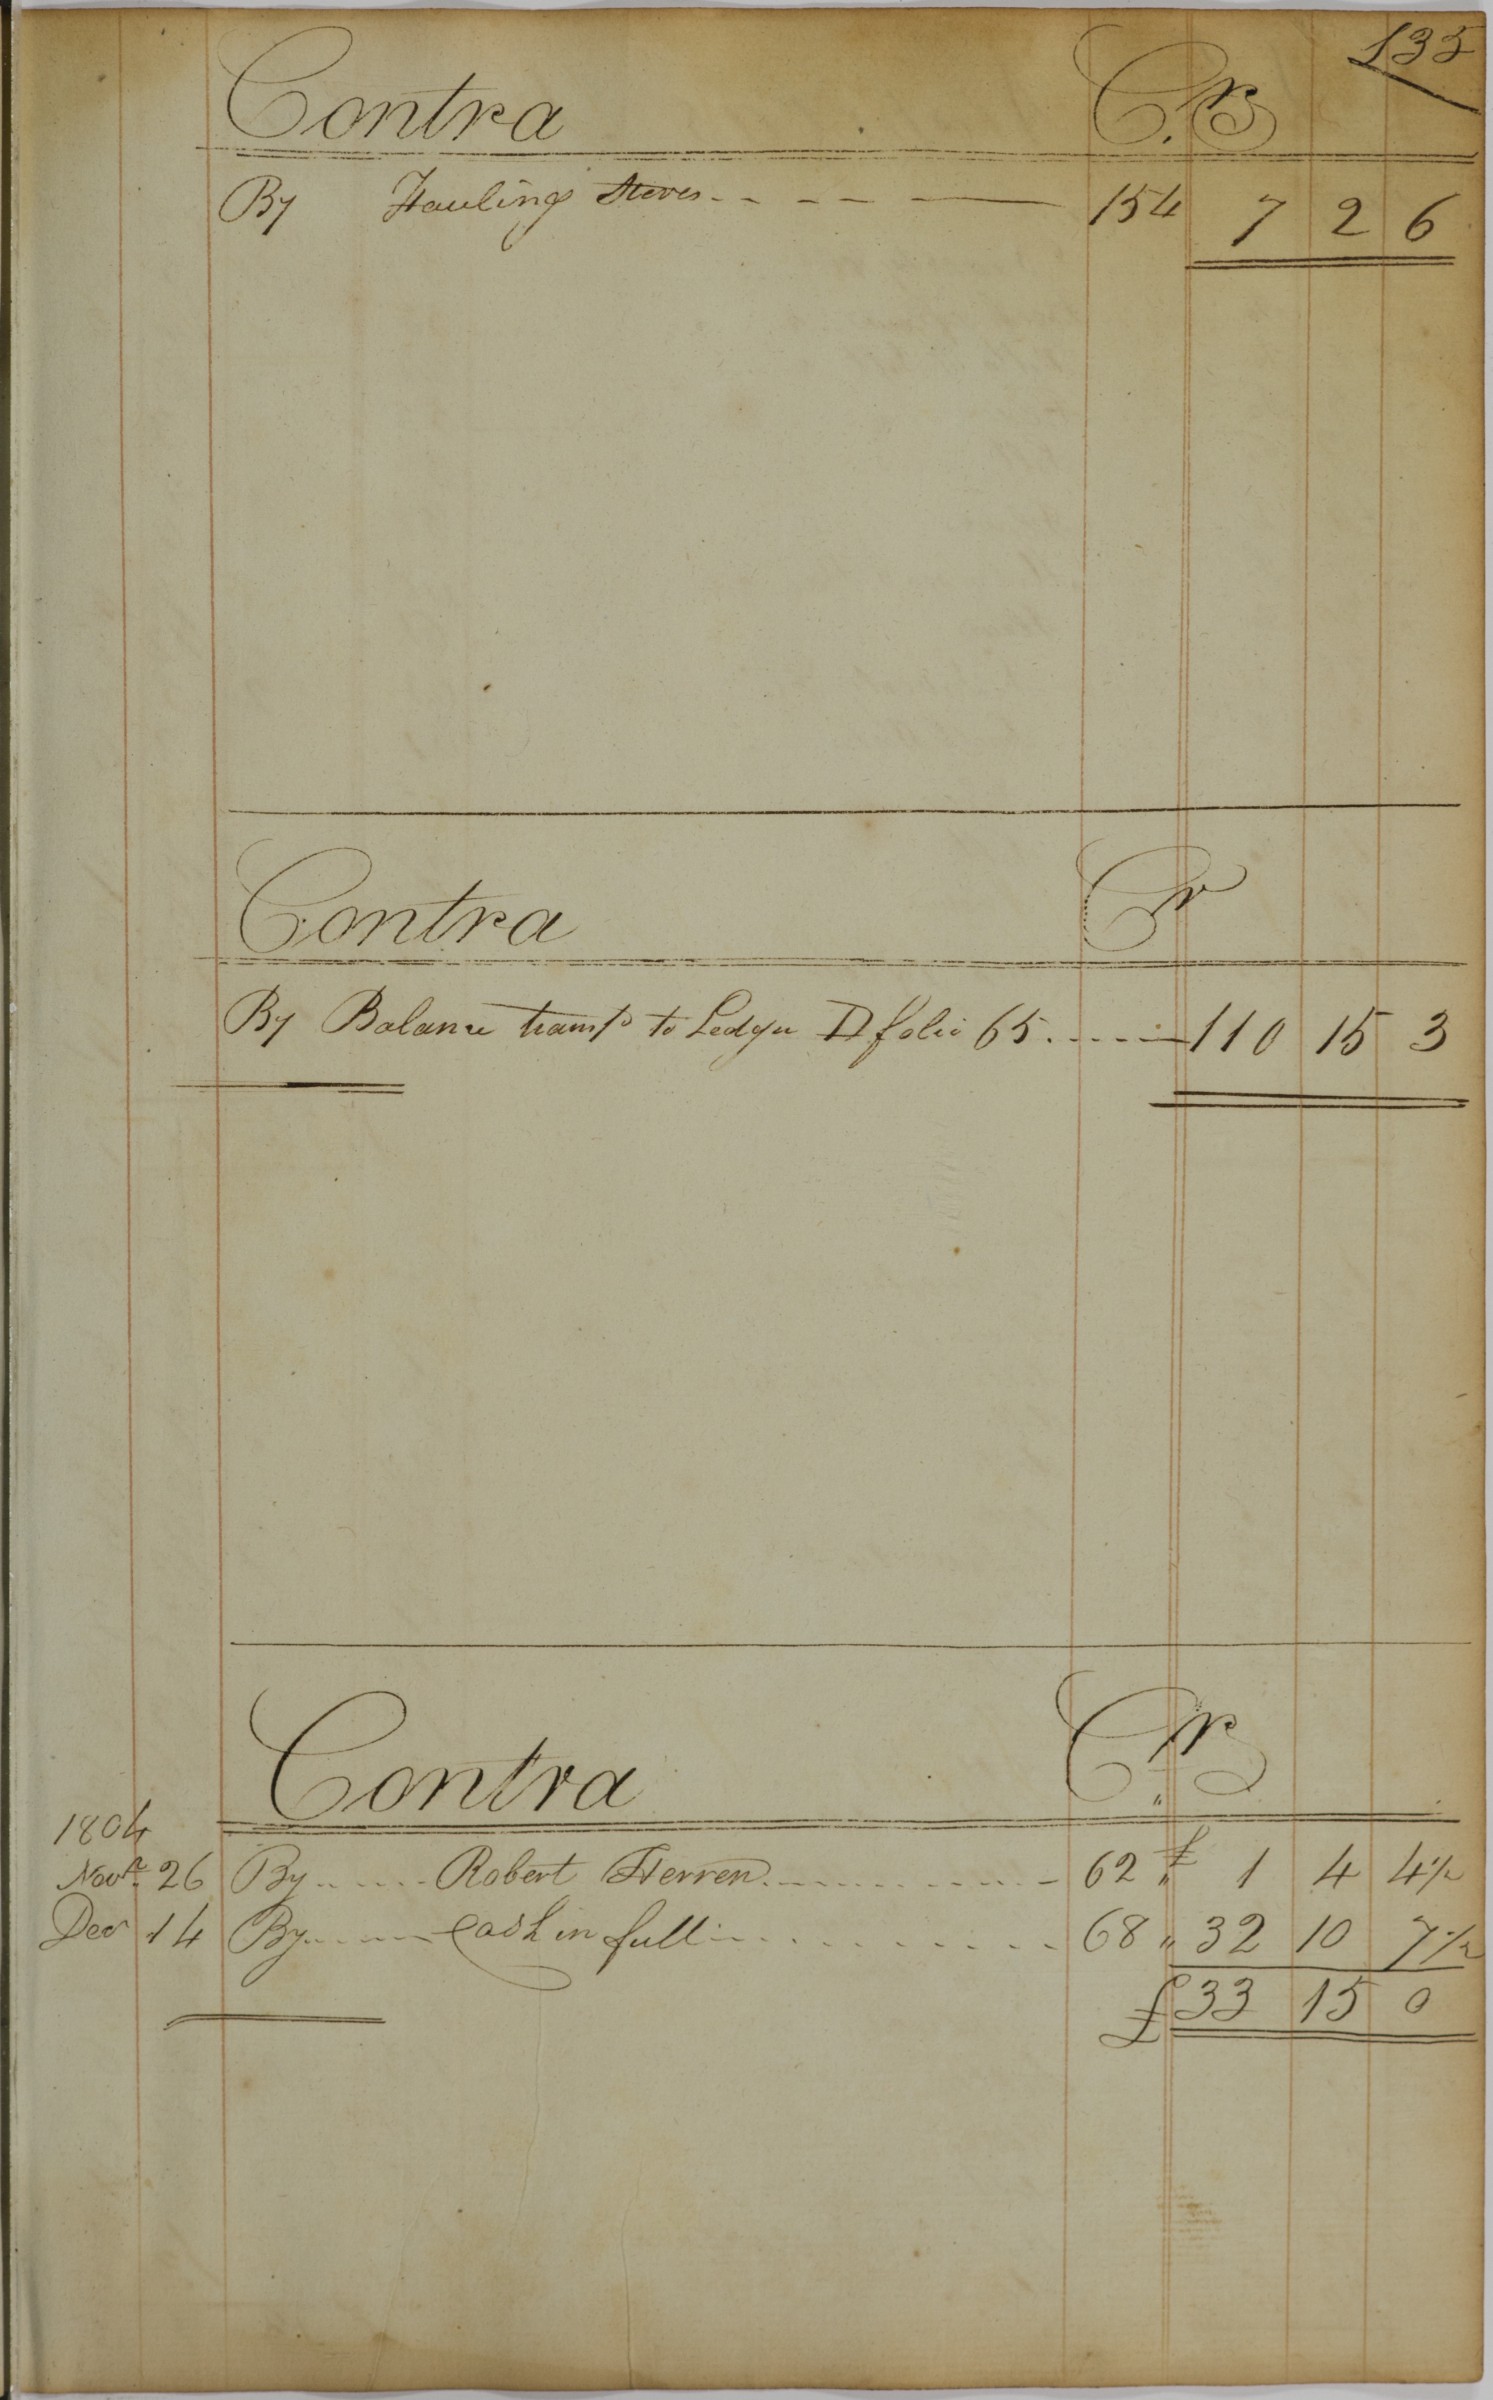 135
Contra Cr
By Hauling Steves 154 7 2 6
Contra Cr
By Balance transfd to Ledger D folio 65 110 15 3
Contra Cr
1804
Novr 26 By Robert Herren 62 £ 1 4 4½
Decr 14 By Cash in full 68 " 32 10 7½
£ 33 15 0